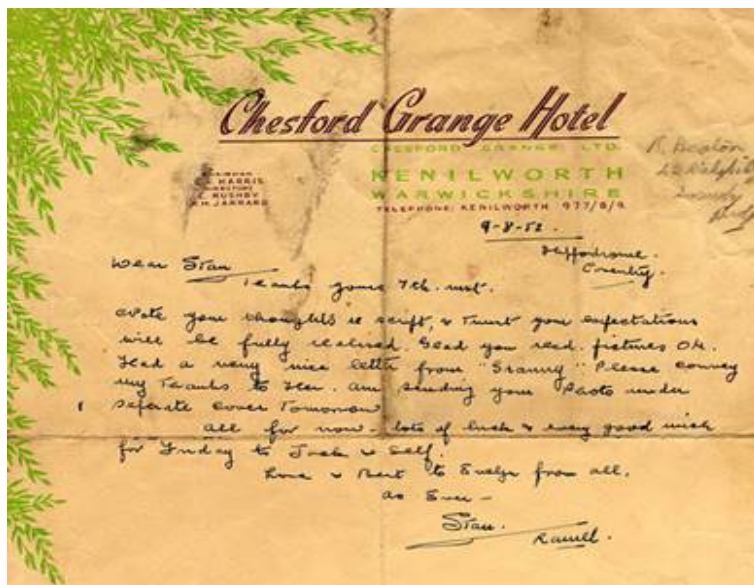 Chesford Grange Hotel
CHESFORD GRANGE LTD.
KENILWORTH
WARWICKSHIRE
TELEPHONE: KENILWORTH 977/8/9
HARRIS
DIRECTORS
RUSHBY
JARRARD
9-8-52.
Hippodrome.
Coventry.
Dear Stan
Thanks yours 7th. inst.
your thoughts re script, & trust your expectations
will be fully realised. Glad you recd. pictures OK.
Had a very nice letter from "Stanny" Please convey
my thanks to Her. am sending your Photo under
seperate cover Tomorrow
all for now - lots of luck & every good wish
for Friday to Jack & self.
Love & Best to Evelyn from all.
as Ever -
Stan.